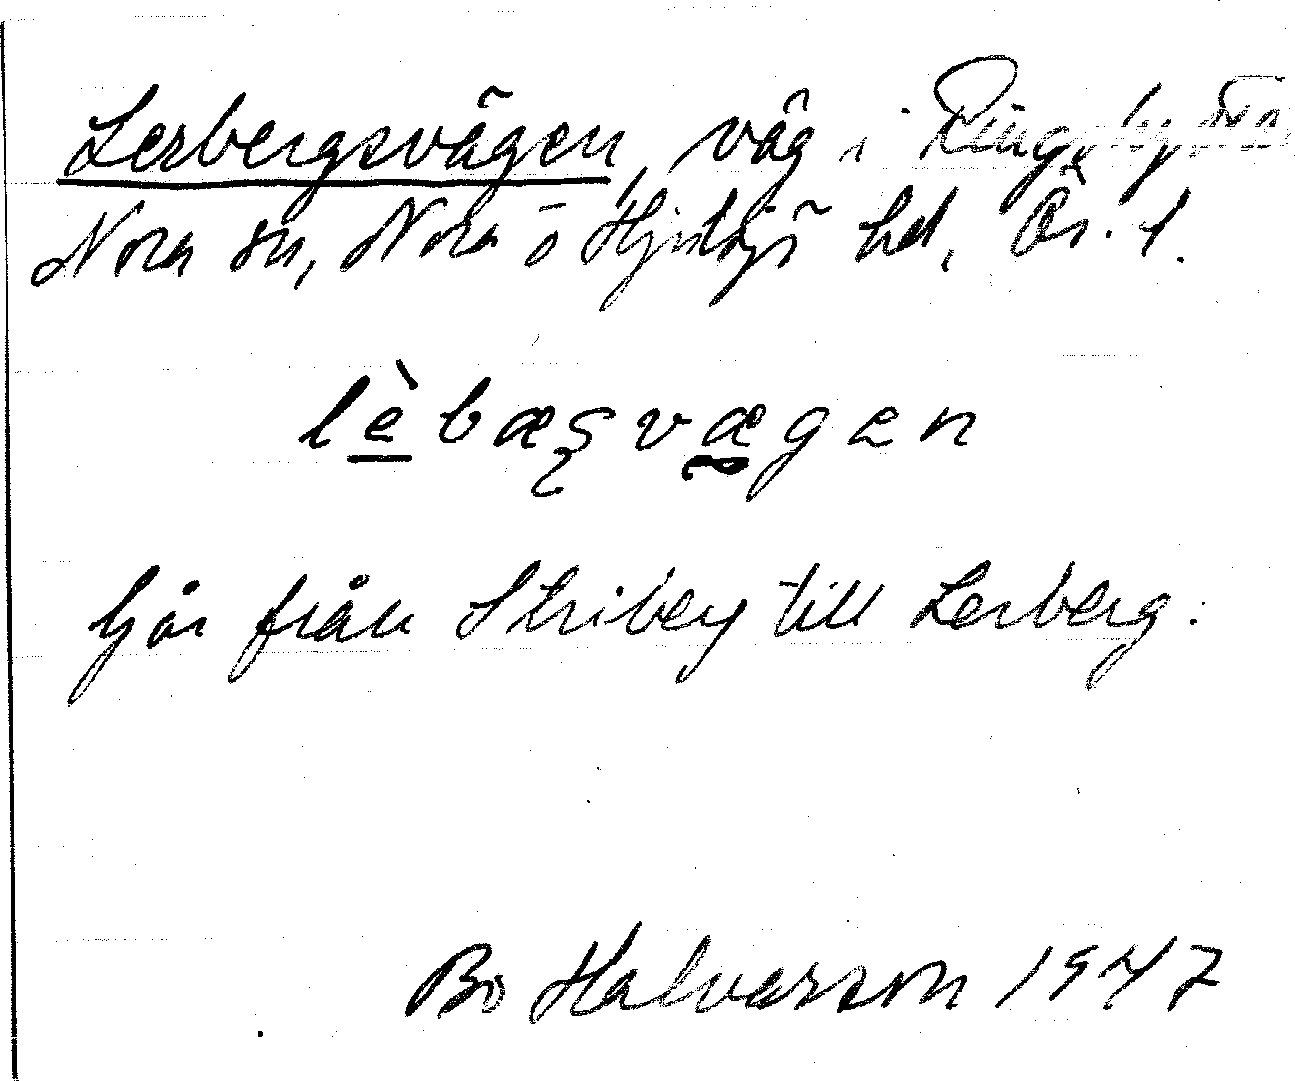 Lerbergsvägen, väg i
Nora sn, Nora o Hjulsjö hd, Ör. l.
lèbæʂvægen
Går från Striberg till Lerberg.
Bo Halvarson 1947